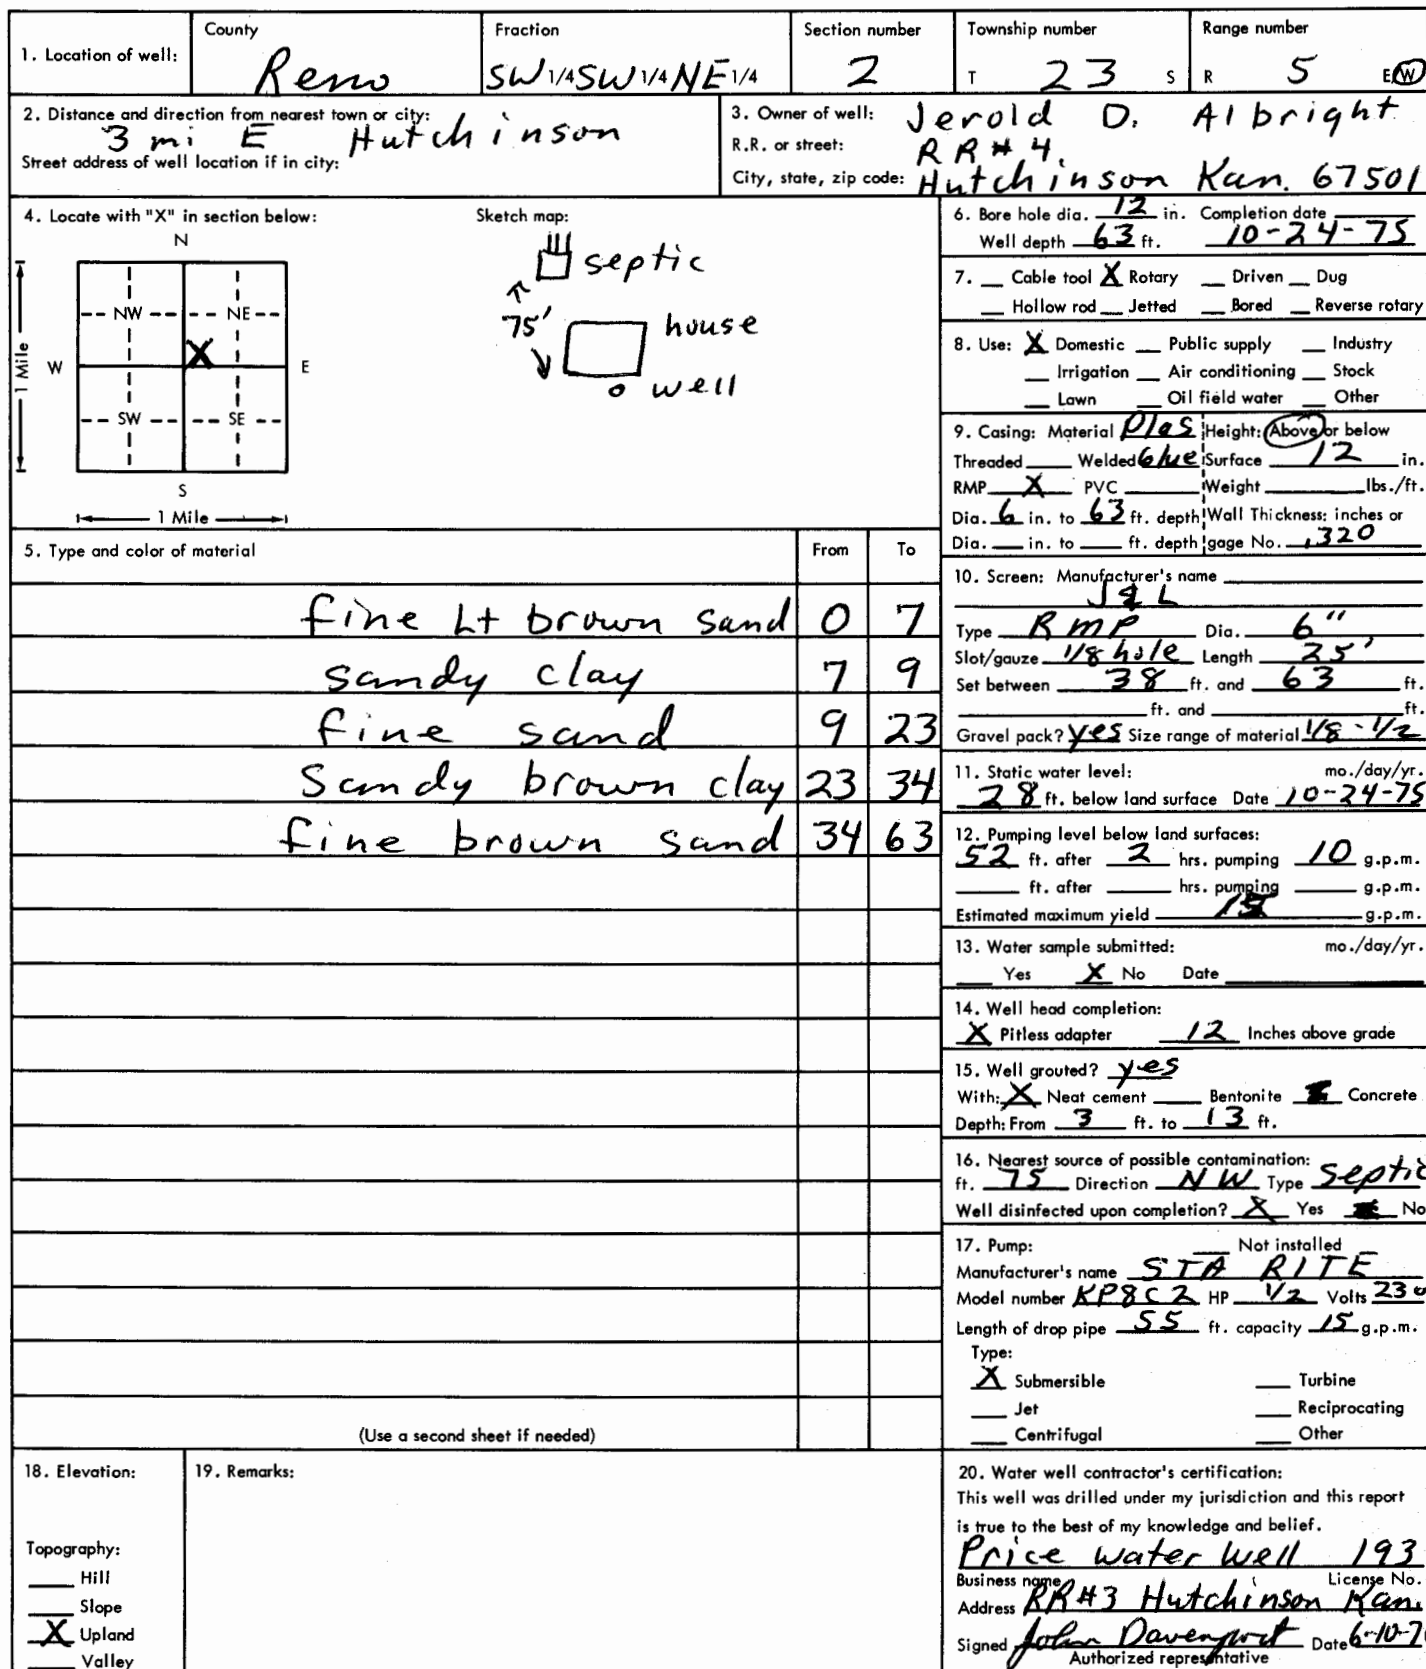 1. Location of well: County Fraction Section number Township number Range number
Reno SW 1/4 SW 1/4 NE 1/4 2 T 23 S R 5 E/W
2. Distance and direction from nearest town or city:
3 mi E Hutchinson
Street address of well location if in city:
3. Owner of well: Jerold D. Albright
R.R. or street: RR#4,
City, state, zip code: Hutchinson Kan. 67501
4. Locate with "X" in section below:
N
NW NE
X
W E
SW SE
S
1 Mile
1 Mile
Sketch map:
septic
75'
house
well
5. Type and color of material From To
fine Lt brown sand 0 7
sandy clay 7 9
fine sand 9 23
Sandy brown clay 23 34
fine brown sand 34 63
(Use a second sheet if needed)
6. Bore hole dia. 12 in. Completion date
Well depth 63 ft. 10-24-75
7. Cable tool X Rotary Driven Dug
Hollow rod Jetted Bored Reverse rotary
8. Use: X Domestic Public supply Industry
Irrigation Air conditioning Stock
Lawn Oil field water Other
9. Casing: Material Plas Height: Above or below
Threaded Welded Glue Surface 12 in.
RMP X PVC Weight lbs./ft.
Dia. 6 in. to 63 ft. depth Wall Thickness: inches or
Dia. in. to ft. depth gage No. .320
10. Screen: Manufacturer's name
J&L
Type RMP Dia. 6"
Slot/gauze 1/8 hole Length 25'
Set between 38 ft. and 63 ft.
ft. and ft.
Gravel pack? yes Size range of material 1/8-1/2
11. Static water level: mo./day/yr.
28 ft. below land surface Date 10-24-75
12. Pumping level below land surfaces:
52 ft. after 2 hrs. pumping 10 g.p.m.
ft. after hrs. pumping g.p.m.
Estimated maximum yield 15 g.p.m.
13. Water sample submitted: mo./day/yr.
Yes X No Date
14. Well head completion:
X Pitless adapter 12 Inches above grade
15. Well grouted? yes
With: X Neat cement Bentonite Concrete
Depth: From 3 ft. to 13 ft.
16. Nearest source of possible contamination:
ft. 75 Direction NW Type septic
Well disinfected upon completion? X Yes No
17. Pump: Not installed
Manufacturer's name STA RITE
Model number KP8C2 HP 1/2 Volts 230
Length of drop pipe 55 ft. capacity 15 g.p.m.
Type:
X Submersible Turbine
Jet Reciprocating
Centrifugal Other
18. Elevation:
Topography:
Hill
Slope
X Upland
Valley
19. Remarks:
20. Water well contractor's certification:
This well was drilled under my jurisdiction and this report
is true to the best of my knowledge and belief.
Price Water Well 193
Business name License No.
Address RR#3 Hutchinson Kan.
Signed John Davenport Date 6-10-7
Authorized representative